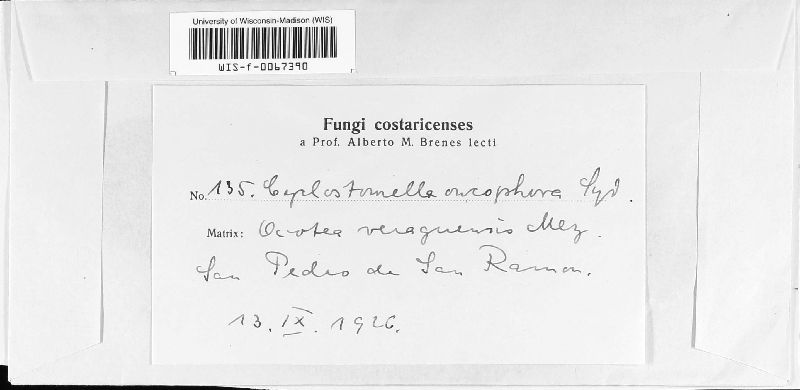 University of Wisconsin-Madison (WIS)
WIS-f-0067390
Fungi costaricenses
a Prof. Alberto M. Brenes lecti
No. 135. Cyclostomella oncophora Syd.
Matrix: Ocotea veraguensis Mez.
San Pedro de San Ramon.
13. IX. 1926.